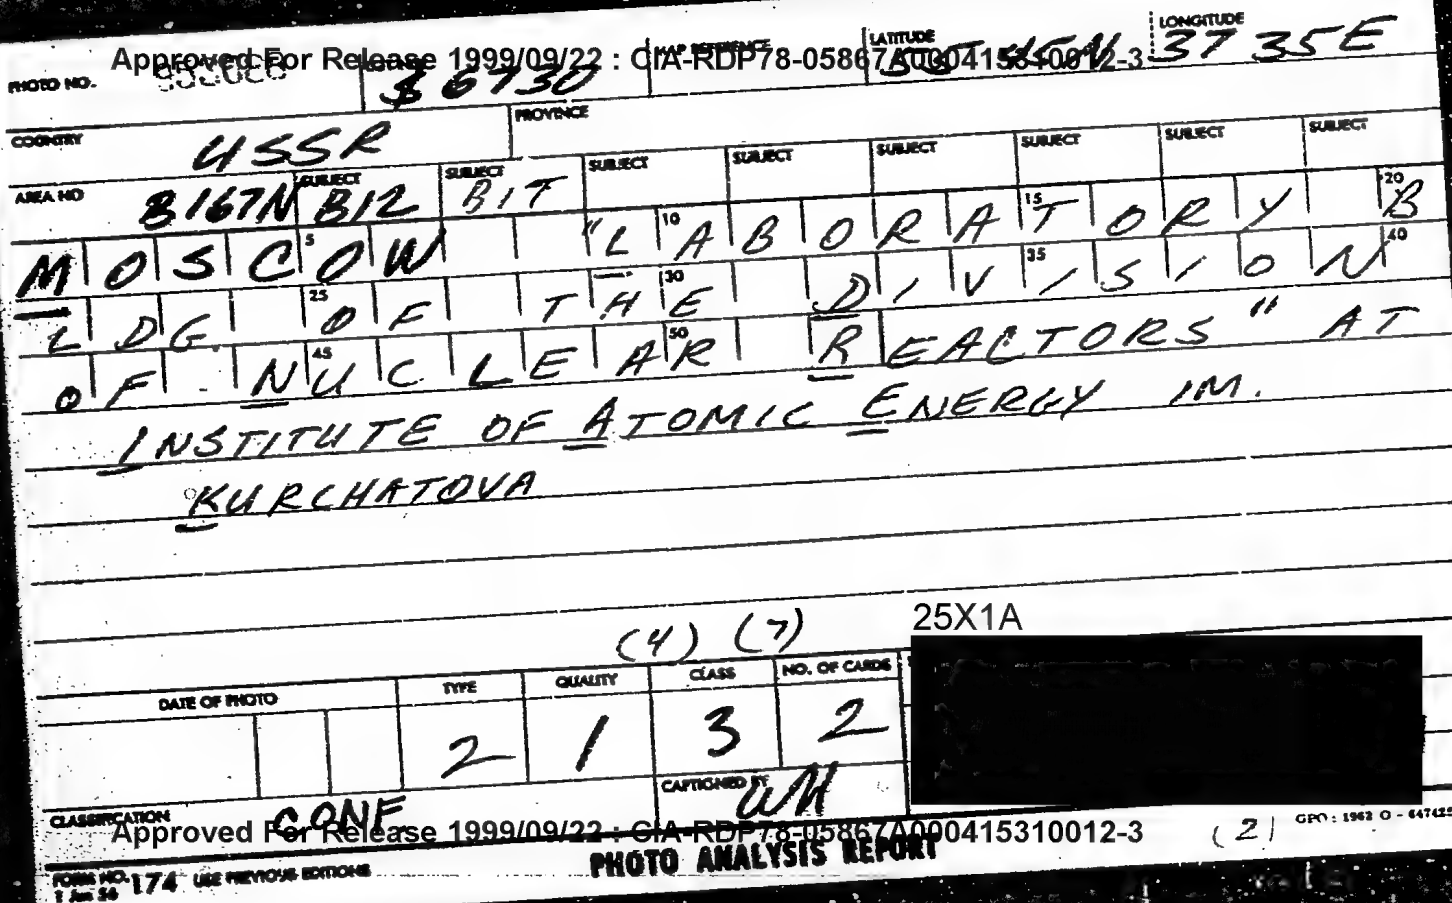 Approved For Release 1999/09/22 : CIA-RDP78-05867A000415310012-3
PHOTO NO. MAP REFERENCE LATITUDE LONGITUDE
6730 37 35E
COUNTRY USSR PROVINCE
AREA NO 8167N SUBJECT B12 SUBJECT BIT SUBJECT SUBJECT SUBJECT SUBJECT SUBJECT SUBJECT
MOSCOW "LABORATORY B
LDG. OF THE DIVISION
OF NUCLEAR REACTORS" AT
INSTITUTE OF ATOMIC ENERGY IM.
KURCHATOVA
25X1A
(4) (7)
DATE OF PHOTO TYPE QUALITY CLASS NO. OF CARDS
2 1 3 2
CAPTIONED BY WH
CLASSIFICATION CONF.
Approved For Release 1999/09/22 : CIA-RDP78-05867A000415310012-3
(2) GPO : 1962 O - 
PHOTO ANALYSIS REPORT
FORM NO. 174 USE PREVIOUS EDITIONS
1 Jun 56